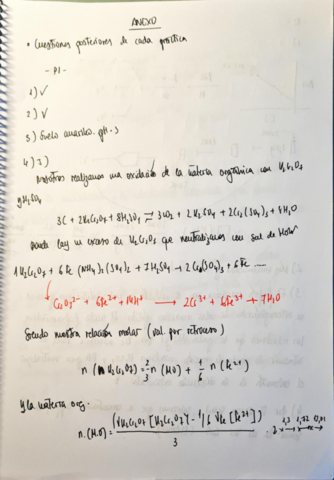 ANEXO
• Cuestiones posteriores de cada práctica
- P1 -
1) ✓
2) ✓
3) Suelo pH
4)
Nosotros realizamos una oxidación de la materia orgánica con K₂Cr₂O₇
y H₂SO₄
3C + 2K₂Cr₂O₇ + 8H₂SO₄ ⇌ 3CO₂ + 2K₂SO₄ + 2Cr₂(SO₄)₃ + 8H₂O
Donde hay un exceso de K₂Cr₂O₇ que neutralizamos con sal de Mohr
1 K₂Cr₂O₇ + 6Fe(NH₄)₂(SO₄)₂ + 7H₂SO₄ → 2Cr₂(SO₄)₃ + 6Fe ....
Cr₂O₇²⁻ + 6Fe²⁺ + 14H⁺ → 2Cr³⁺ + 6Fe³⁺ + 7H₂O
Siendo nuestra relación molar (val. por retroceso)
n (K₂Cr₂O₇) = 2/3 n (M.O) + 1/6 n (Fe²⁺)
Y la materia org:
n (M.O) = (V K₂Cr₂O₇ [K₂Cr₂O₇] - 1/6 V Fe [Fe²⁺]) / 3